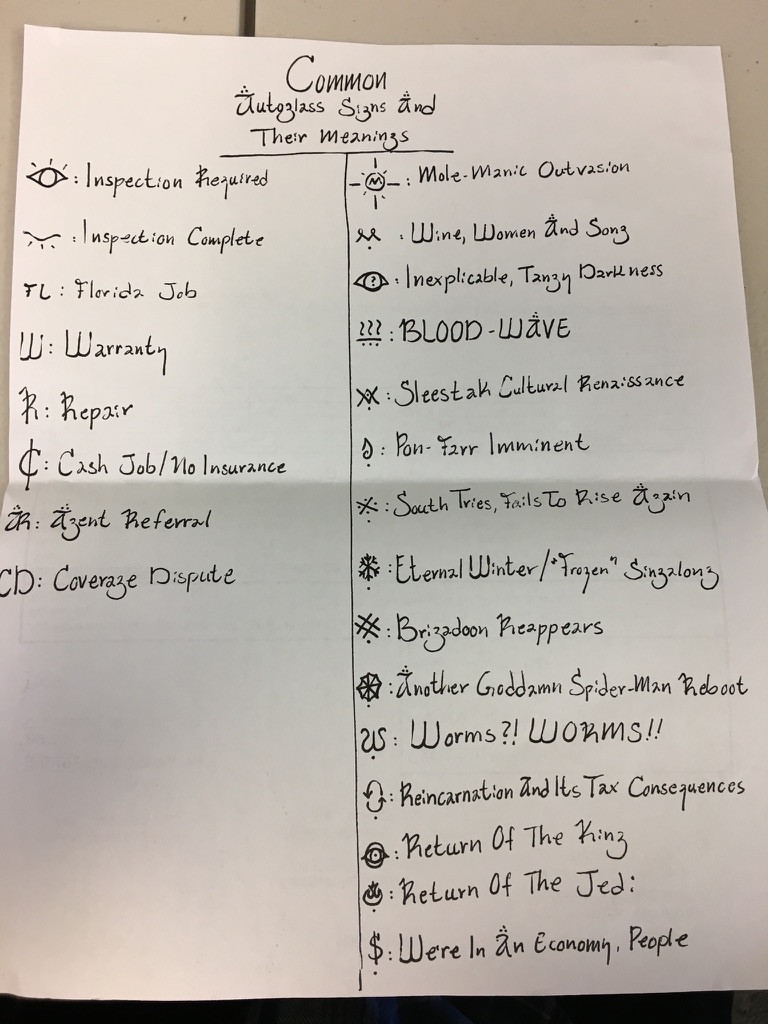 Common
Autoglass Signs And
Their Meanings
: Inspection Required
: Inspection Complete
FL : Florida Job
W : Warranty
R : Repair
₵ : Cash Job/No Insurance
AR : Agent Referral
CD : Coverage Dispute
M : Mole-Manic Outvasion
: Wine, Women And Song
? : Inexplicable, Tangy Darkness
??? : BLOOD-WAVE
: Sleestak Cultural Renaissance
: Pon-Farr Imminent
: South Tries, Fails To Rise Again
: Eternal Winter/"Frozen" Singalong
: Brigadoon Reappears
: Another Goddamn Spider-Man Reboot
: Worms?! WORMS!!
: Reincarnation And Its Tax Consequences
: Return Of The King
: Return Of The Jedi
$ : We're In An Economy, People